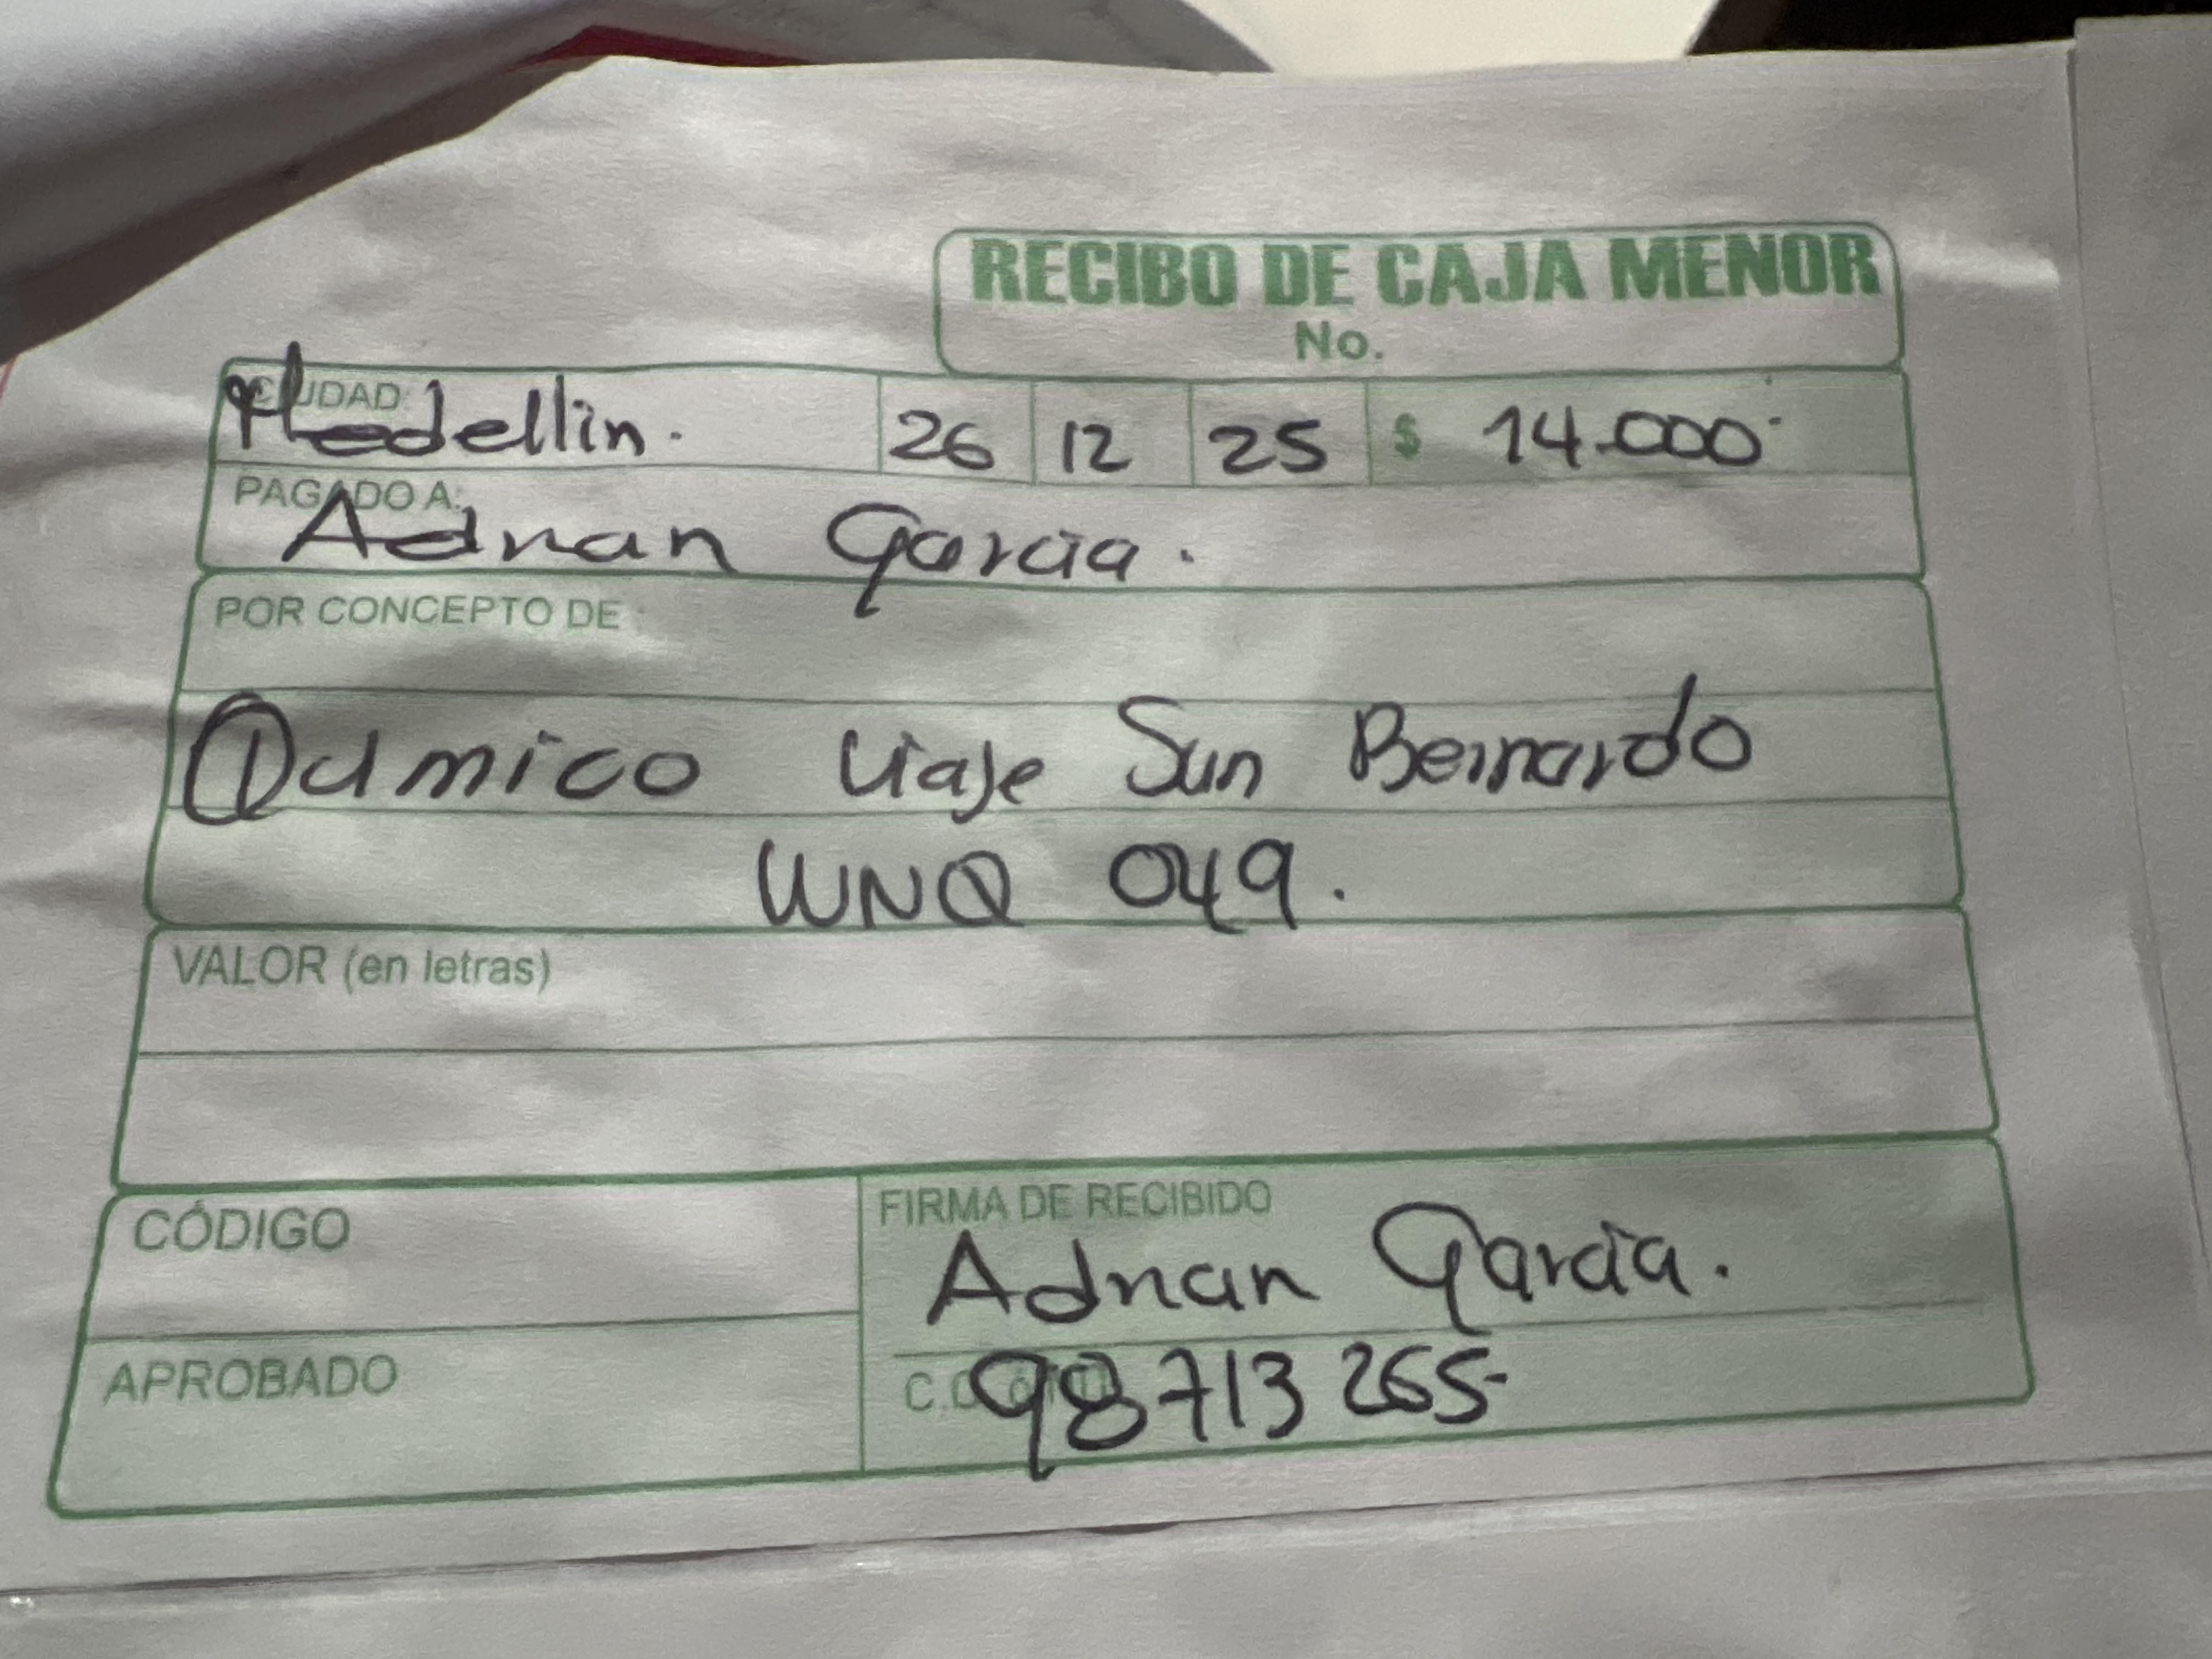 RECIBO DE CAJA MENOR
No.
CIUDAD: Medellin. 26 12 25 $ 14.000
PAGADO A: Adrian Garcia.
POR CONCEPTO DE
Quimico Viaje San Bernardo
WNQ 049.
VALOR (en letras)
CÓDIGO
FIRMA DE RECIBIDO
Adrian Garcia.
APROBADO
98713265